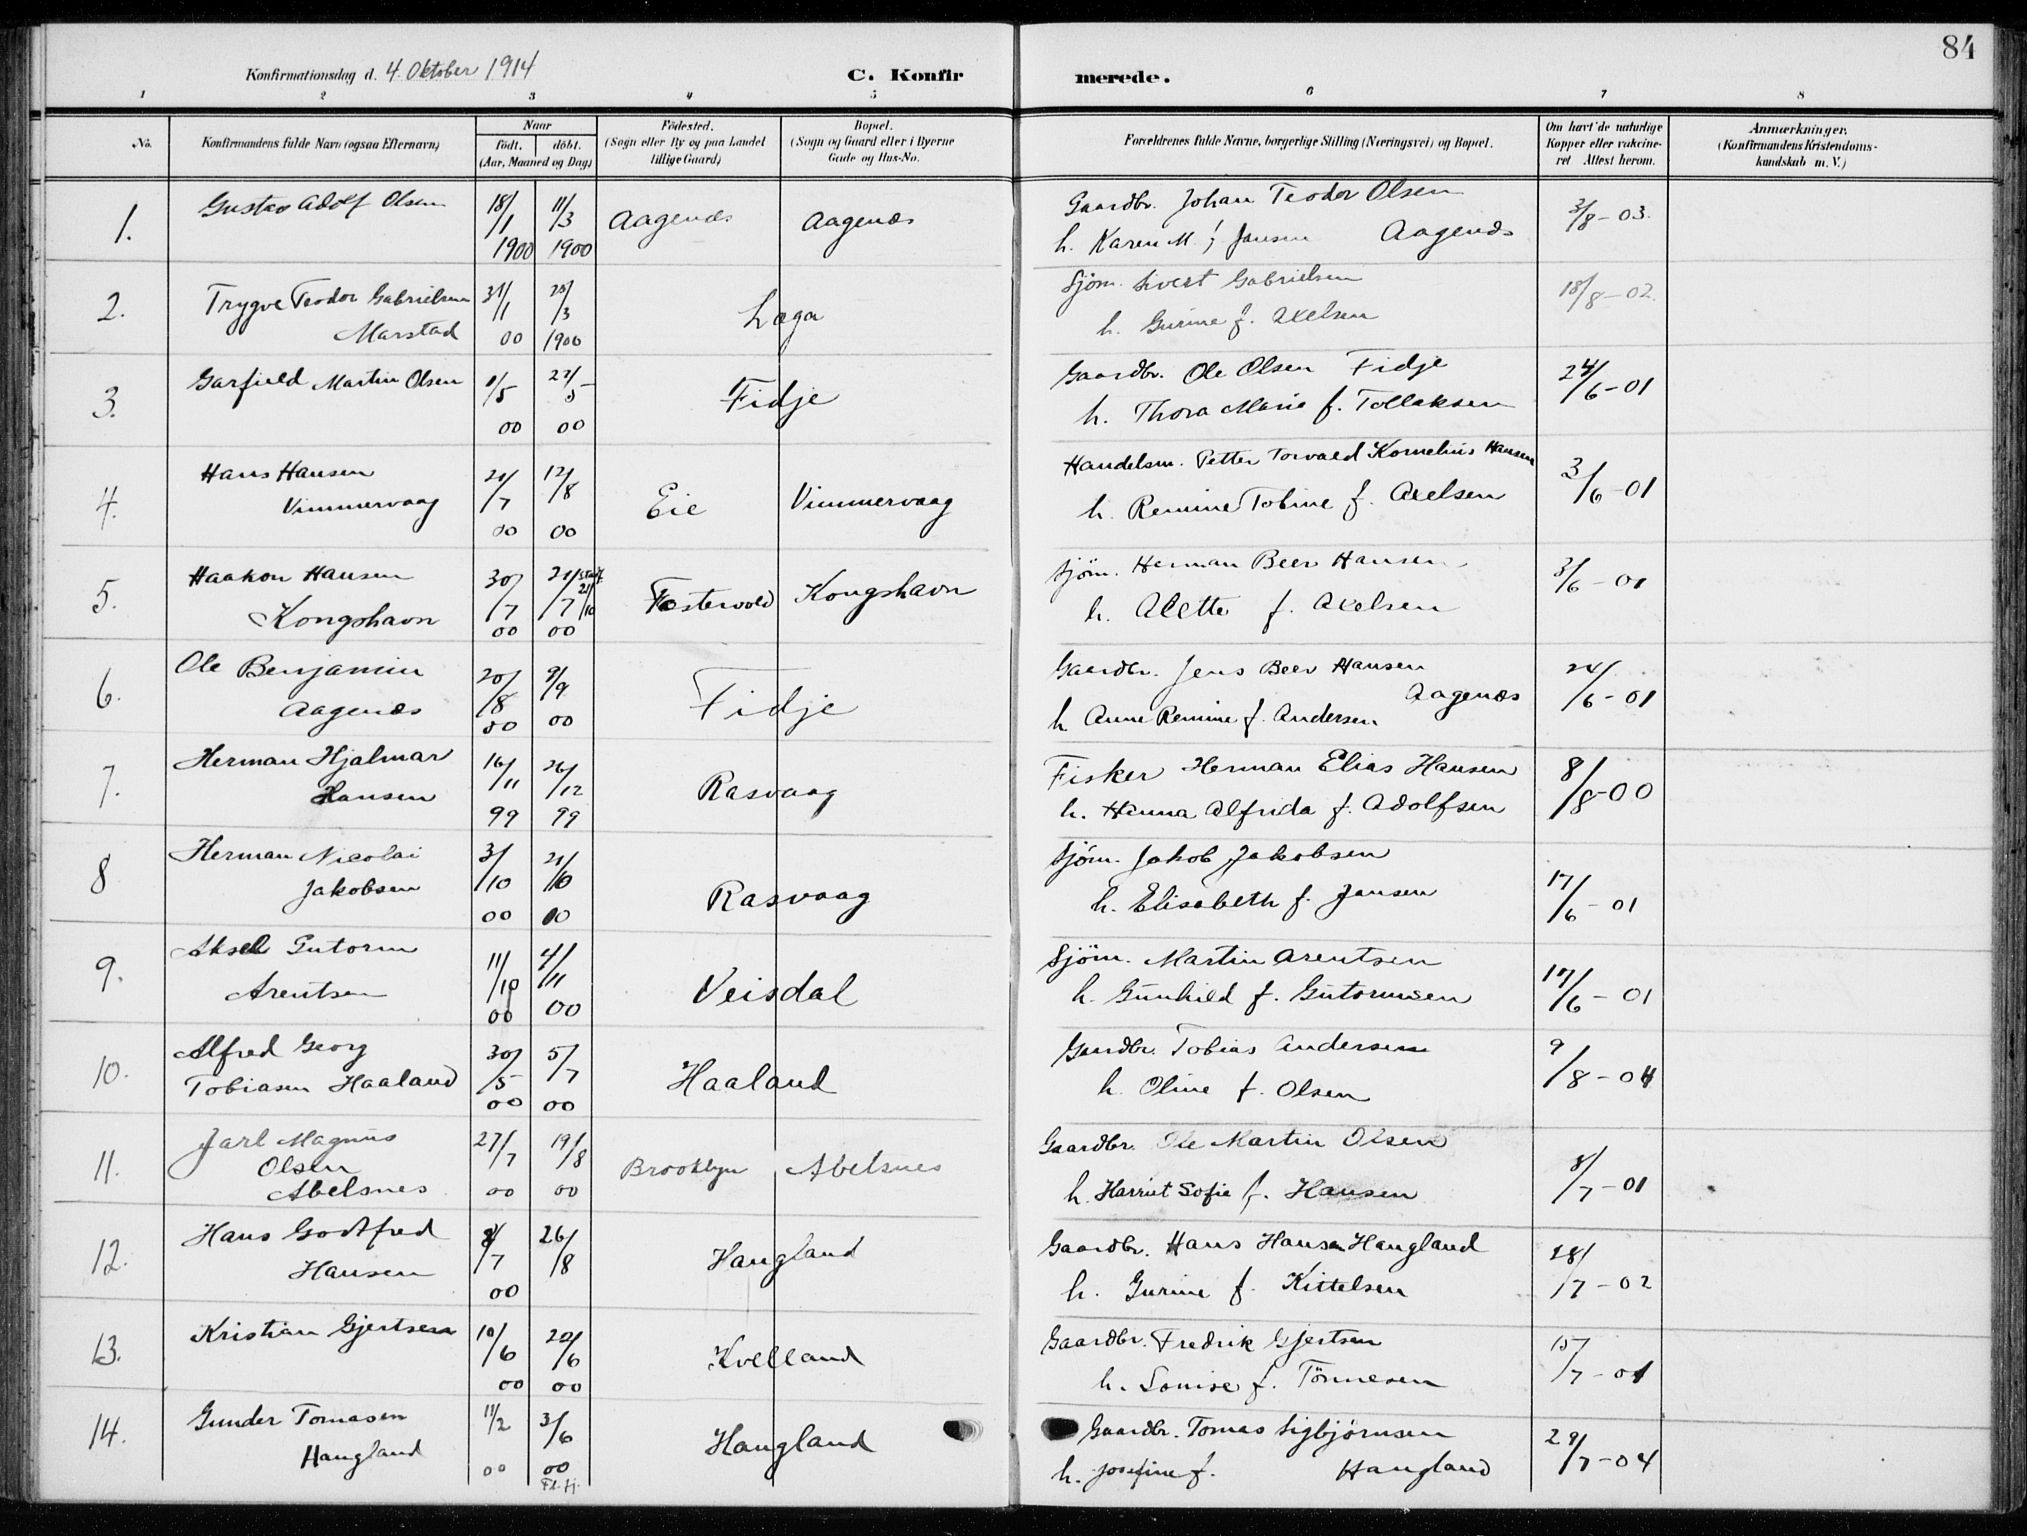 84
Konfirmationsdag d. 4. Oktober 1914
C. Konfirmerede.
1 2 3 4 5 6 7 8
No.
Konfirmandens fulde Navn (ogsaa Efternavn)
Naar
födt. döbt.
(Aar, Maaned og Dag)
Födested.
(Sogn eller By og paa Landet tillige Gaard)
Bopæl.
(Sogn og Gaard eller i Byerne Gade og Hus-No.
Forældrenes fulde Navne, borgerlige Stilling (Næringsvei) og Bopæl.
Om havt de naturlige Kopper eller vakcineret Attest herom.
Anmærkninger.
(Konfirmandens Kristendomskundskab m. V.)
1. Gustav Adolf Olsen 18/1 1900 11/3 1900 Aagenæs Aagenæs
Gaardbr. Johan Teodor Olsen 3/8-03.
h. Karen M. f. Jansen Aagenæs
2. Trygve Teodor Gabrielsen 31/1 00 /3 1900 Laga
Marstad
Sjöm. Sivert Gabrielsen 18/8-02.
h. Gurine f. Axelsen
3. Garfield Martin Olsen /5 00 27/5 00 Fidje
Gaardbr. Ole Olsen Fidje 24/6-01
h. Thora Marie f. Tollaksen
4. Hans Hansen 21/7 00 12/8 00 Eie Vimmervaag
Vimmervaag
Handelsm. Petter Torvald Kornelius Hansen 3/6-01
h. Remine Tobine f. Axelsen
5. Haakon Hansen 30/7 00 21/7 00 stadf. 21/10 Fosterwold Kongshavn
Kongshavn
Sjöm. Herman Beer Hansen 3/6-01
h. Alette f. Axelsen
6. Ole Benjamin 20/8 00 9/9 00 Fidje
Aagenæs
Gaardbr. Jens Beer Hansen 24/6-01
Aagenæs
h Anne Remine f. Andersen
7. Herman Hjalmar 16/11 99 26/12 99 Rasvaag
Hansen
Fisker Herman Elias Hansen 8/8-00
h. Hinna Alfrida f. Adolfsen
8 Herman Nicolai 3/10 00 21/10 00 Rasvaag
Jakobsen
Sjöm. Jakob Jakobsen 17/6-01
h. Elisabeth f. Jansen
9. Aksel Gutorm 11/10 00 4/11 00 Veisdal
Arentsen
Sjöm. Martin Arentsen 17/6-01
h. Gunhild f. Gutormsen
10. Alfred Georg 30/5 00 5/7 00 Haaland
Tobiasen Haaland
Gaardbr. Tobias Andersen 9/8-04
h. Oline f. Olsen
11. Jarl Magnus 27/7 00 19/8 00 Brooklyn Abelsnes
Olsen
Abelsnes
Gaardbr. Ole Martin Olsen 8/7-01
h. Harriet Sofie f. Hansen
12. Hans Godtfred 8/7 00 26/8 Haugland
Hansen
Gaardbr. Hans Hansen Haugland 28/7-02
h. Gurine f. Kittelsen
13. Kristian Gjertsen 10/6 00 20/6 00 Kvelland
Gaardbr. Fredrik Gjertsen 15/7-01
h. Louise f. Tönnesen
14. Gunder Tomasen 11/2 00 3/6 00 Haugland
Haugland
Gaardbr. Tomas Sigbjörnsen 29/7-04
h. Josefine f. Haugland